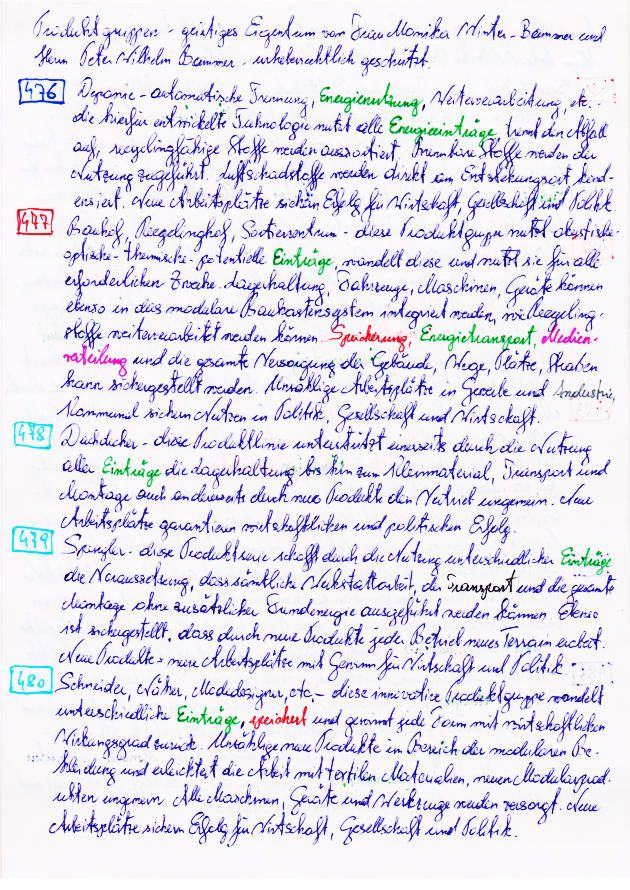 Produktgruppen - geistiges Eigentum von Frau Monika Winter-Bammer und
Herrn Peter Wilhelm Bammer - urheberrechtlich geschützt.
476 Deponie - automatische Trennung, Energienutzung, Weiterverarbeitung, etc. -
die hierfür entwickelte Technologie nutzt alle Energieeinträge, trennt den Abfall
auf, recyclingfähige Stoffe werden aussortiert. Brennbare Stoffe werden der
Nutzung zugeführt. Luftschadstoffe werden direkt am Entstehungsort kond-
ensiert. Neue Arbeitsplätze sichern Erfolg für Wirtschaft, Gesellschaft und Politik.
477 Bauhof, Recyclinghof, Sortierzentrum - diese Produktgruppe nutzt akustische-
optische- thermische- potentielle Einträge, wandelt diese und nutzt sie für alle
erforderlichen Zwecke. Lagerhaltung, Fahrzeuge, Maschinen, Geräte können
ebenso in das modulare Baukastensystem integriert werden, wie Recycling-
stoffe weiterverarbeitet werden können. Speicherung, Energietransport, Medien-
verteilung und die gesamte Versorgung der Gebäude, Wege, Plätze, Straßen
kann sichergestellt werden. Unzählige Arbeitsplätze in Gewerbe und Industrie,
Kommunal sichern Nutzen in Politik, Gesellschaft und Wirtschaft.
478 Dachdecker - diese Produktlinie unterstützt einerseits durch die Nutzung
aller Einträge die Lagerhaltung bis hin zum Kleinmaterial, Transport und
Montage auch andererseits durch neue Produkte den Vertrieb ungemein. Neue
Arbeitsplätze garantieren wirtschaftlichen und politischen Erfolg.
479 Spengler - diese Produktserie schafft durch die Nutzung unterschiedlicher Einträge
die Voraussetzung, dass sämtliche Werkstattarbeit, der Transport und die gesamte
Montage ohne zusätzlicher Fremdenergie ausgeführt werden können. Ebenso
ist sichergestellt, dass durch neue Produkte jeder Betrieb neues Terrain erobert.
Neue Produkte = neue Arbeitsplätze mit Gewinn für Wirtschaft und Politik.
480 Schneider, Näher, Modedesigner, etc. - diese innovative Produktgruppe wandelt
unterschiedliche Einträge, speichert und gewinnt jede Form mit wirtschaftlichen
Wirkungsgrad zurück. Unzählige neue Produkte im Bereich der modularen Be-
kleidung und erleichtert die Arbeit mit textilen Materialien, neuen Modularprod-
ukten ungemein. Alle Maschinen, Geräte und Werkzeuge werden versorgt. Neue
Arbeitsplätze sichern Erfolg für Wirtschaft, Gesellschaft und Politik.